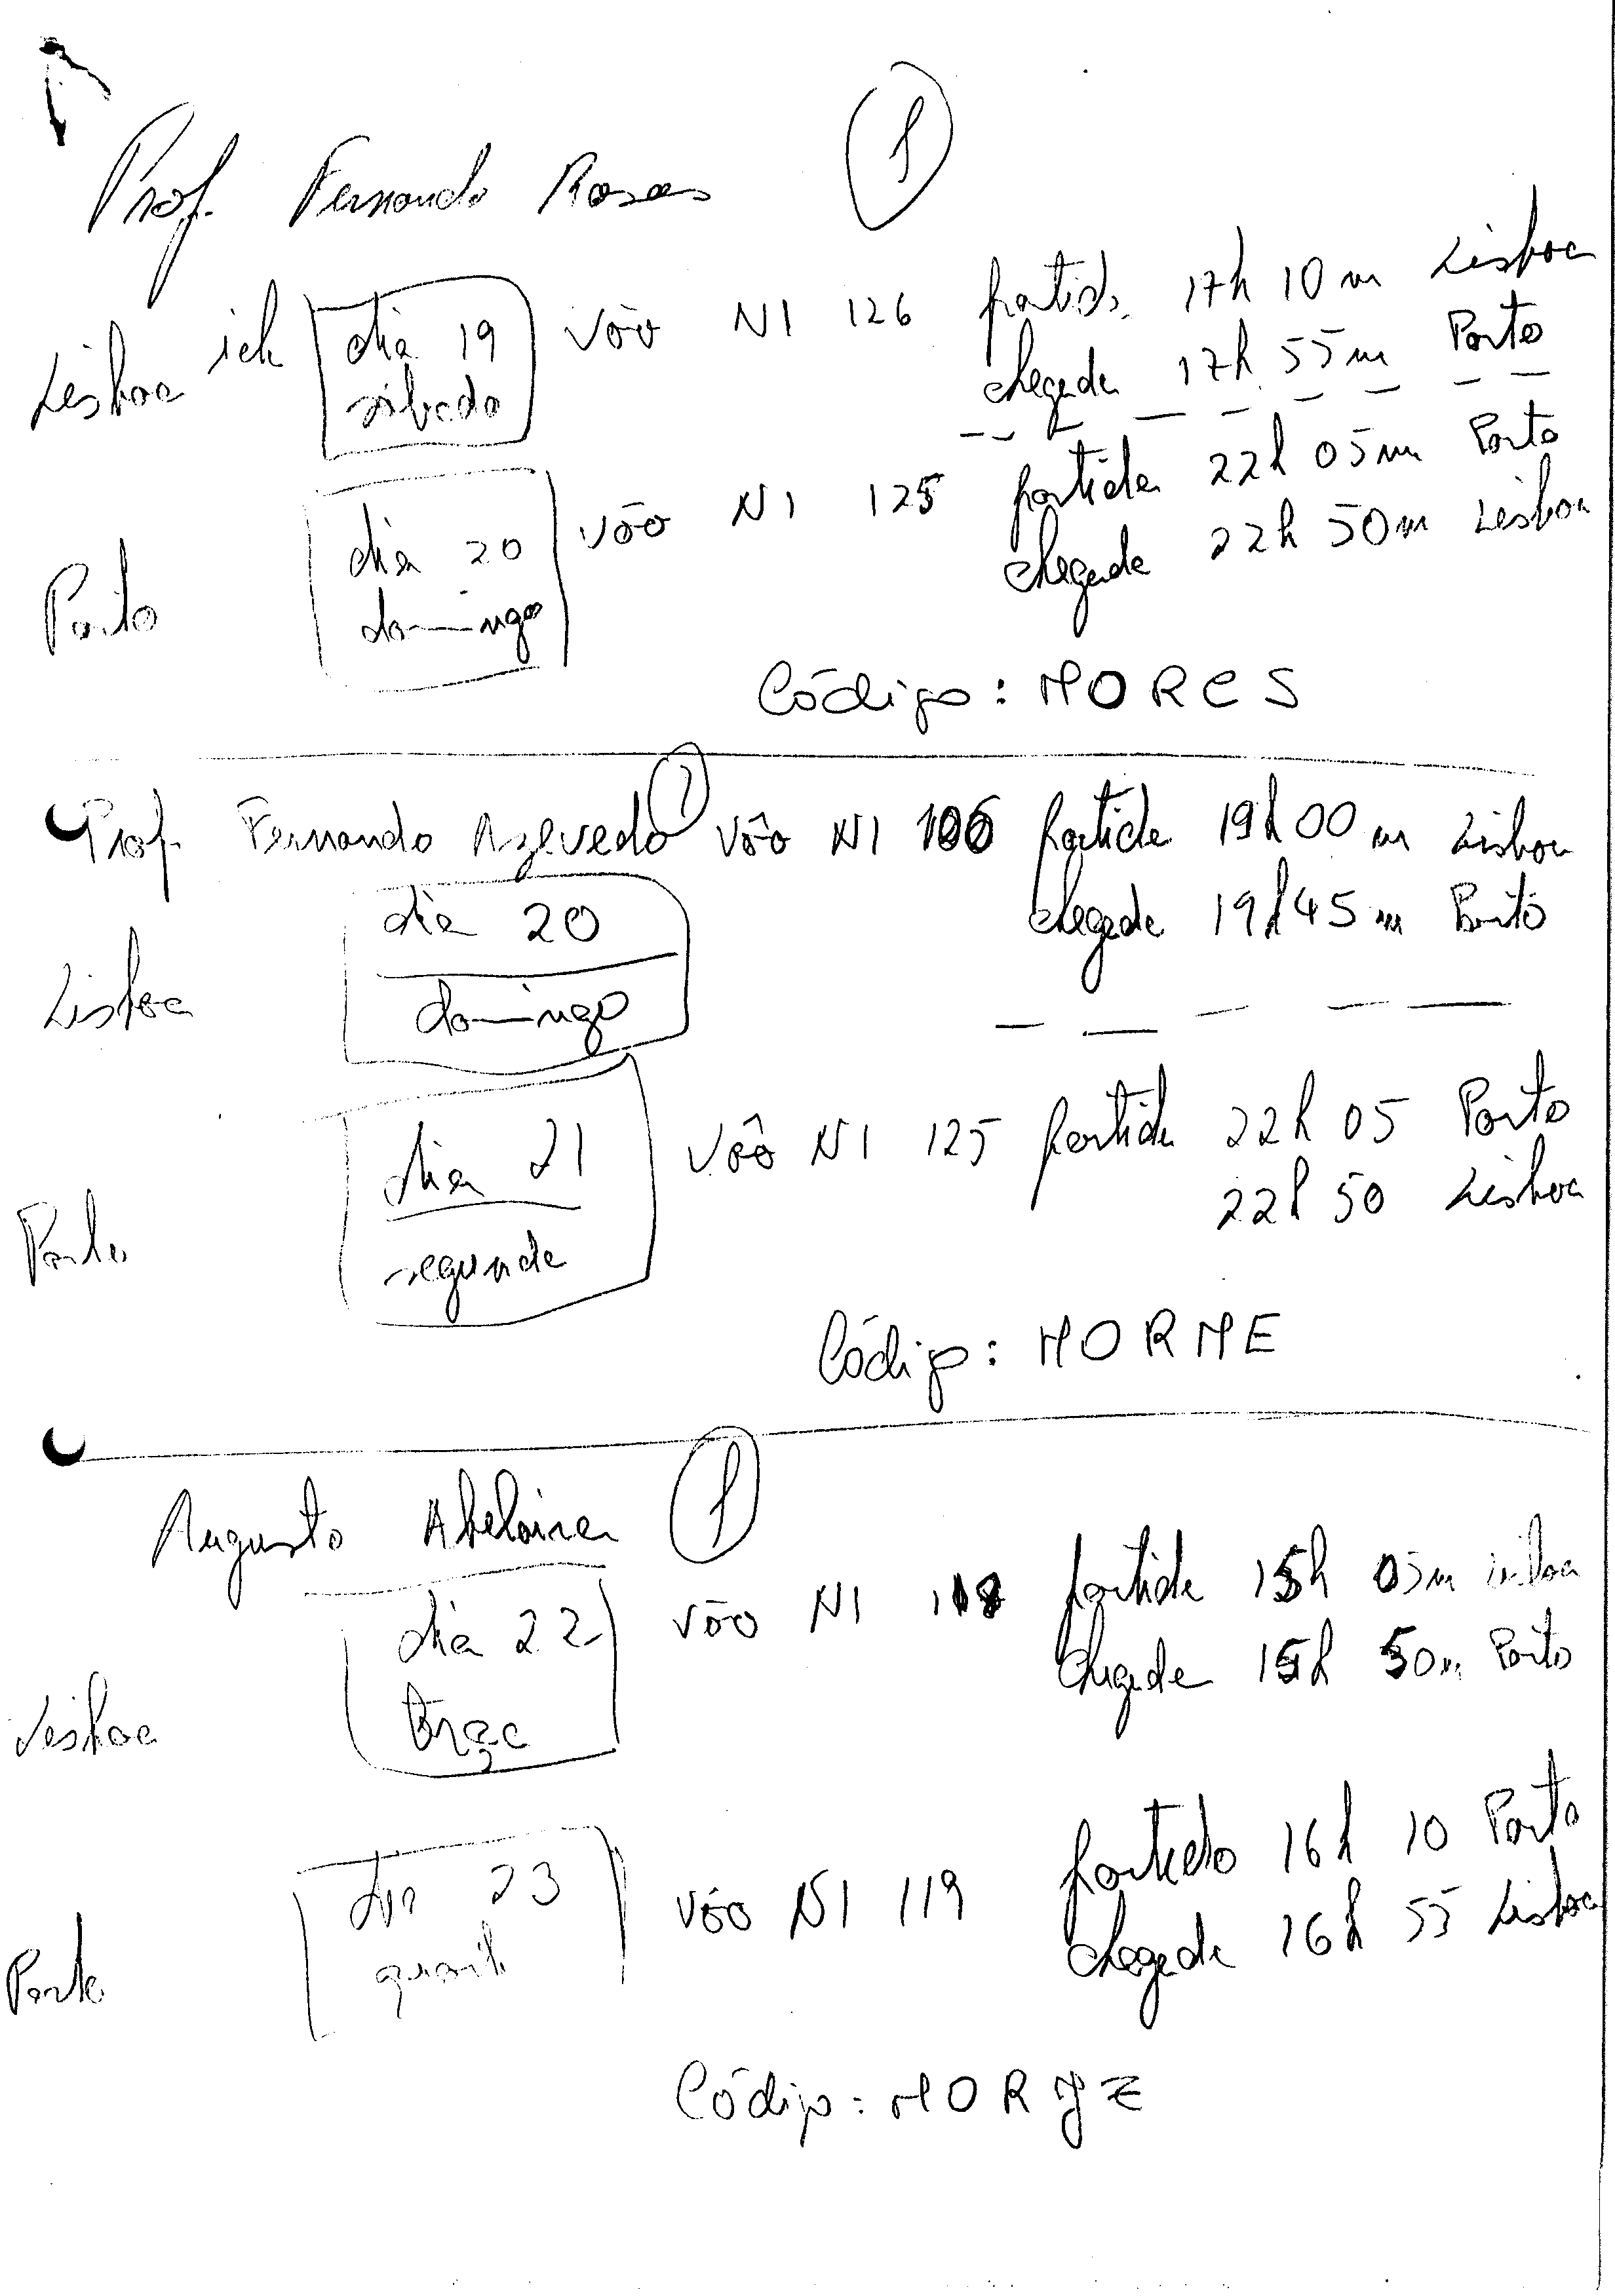 Prof. Fernando Rosas 1
Lisboa dia 19 sábado vôo NI 126 partida 17h 10m Lisboa
chegada 17h 55m Porto
Porto dia 20 domingo vôo NI 125 partida 22h 05m Porto
chegada 22h 50m Lisboa
Código: MORCS
Prof. Fernando Azevedo 1 vôo NI 106 partida 19h 00m Lisboa
chegada 19h45m Porto
Lisboa dia 20 domingo
Porto dia 21 segunda vôo NI 125 partida 22h 05 Porto
22h 50 Lisboa
Código: MORME
Augusto Abelaira 1
Lisboa dia 22 terça vôo NI 118 partida 15h 05m Lisboa
chegada 15h 50m Porto
Porto dia 23 quarta vôo NI 119 partida 16h 10 Porto
chegada 16h 55 Lisboa
Código: